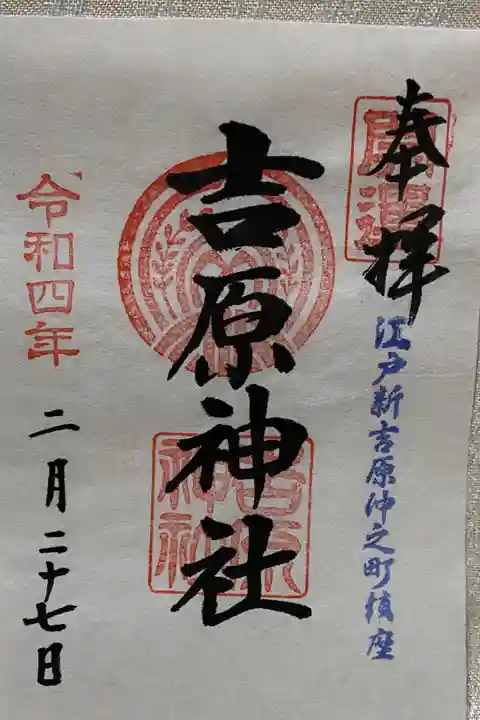 奉拝
開運
江戸新吉原仲之町鎮座
吉原神社
吉原神社
令和四年
二月二十七日